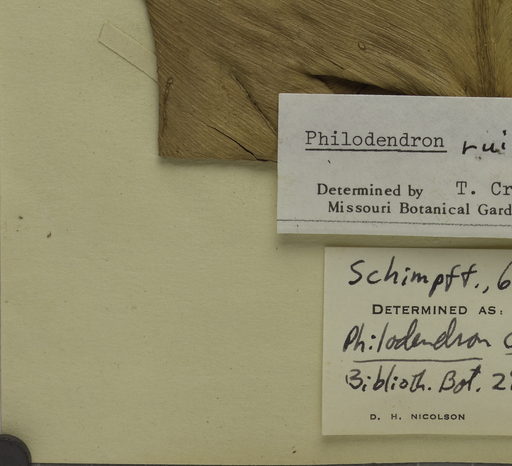 Philodendron rui
Determined by T. Cr
Missouri Botanical Gard
Schimpff., 6
DETERMINED AS:
Philodendron
Biblioth. Bot. 2
D. H. NICOLSON